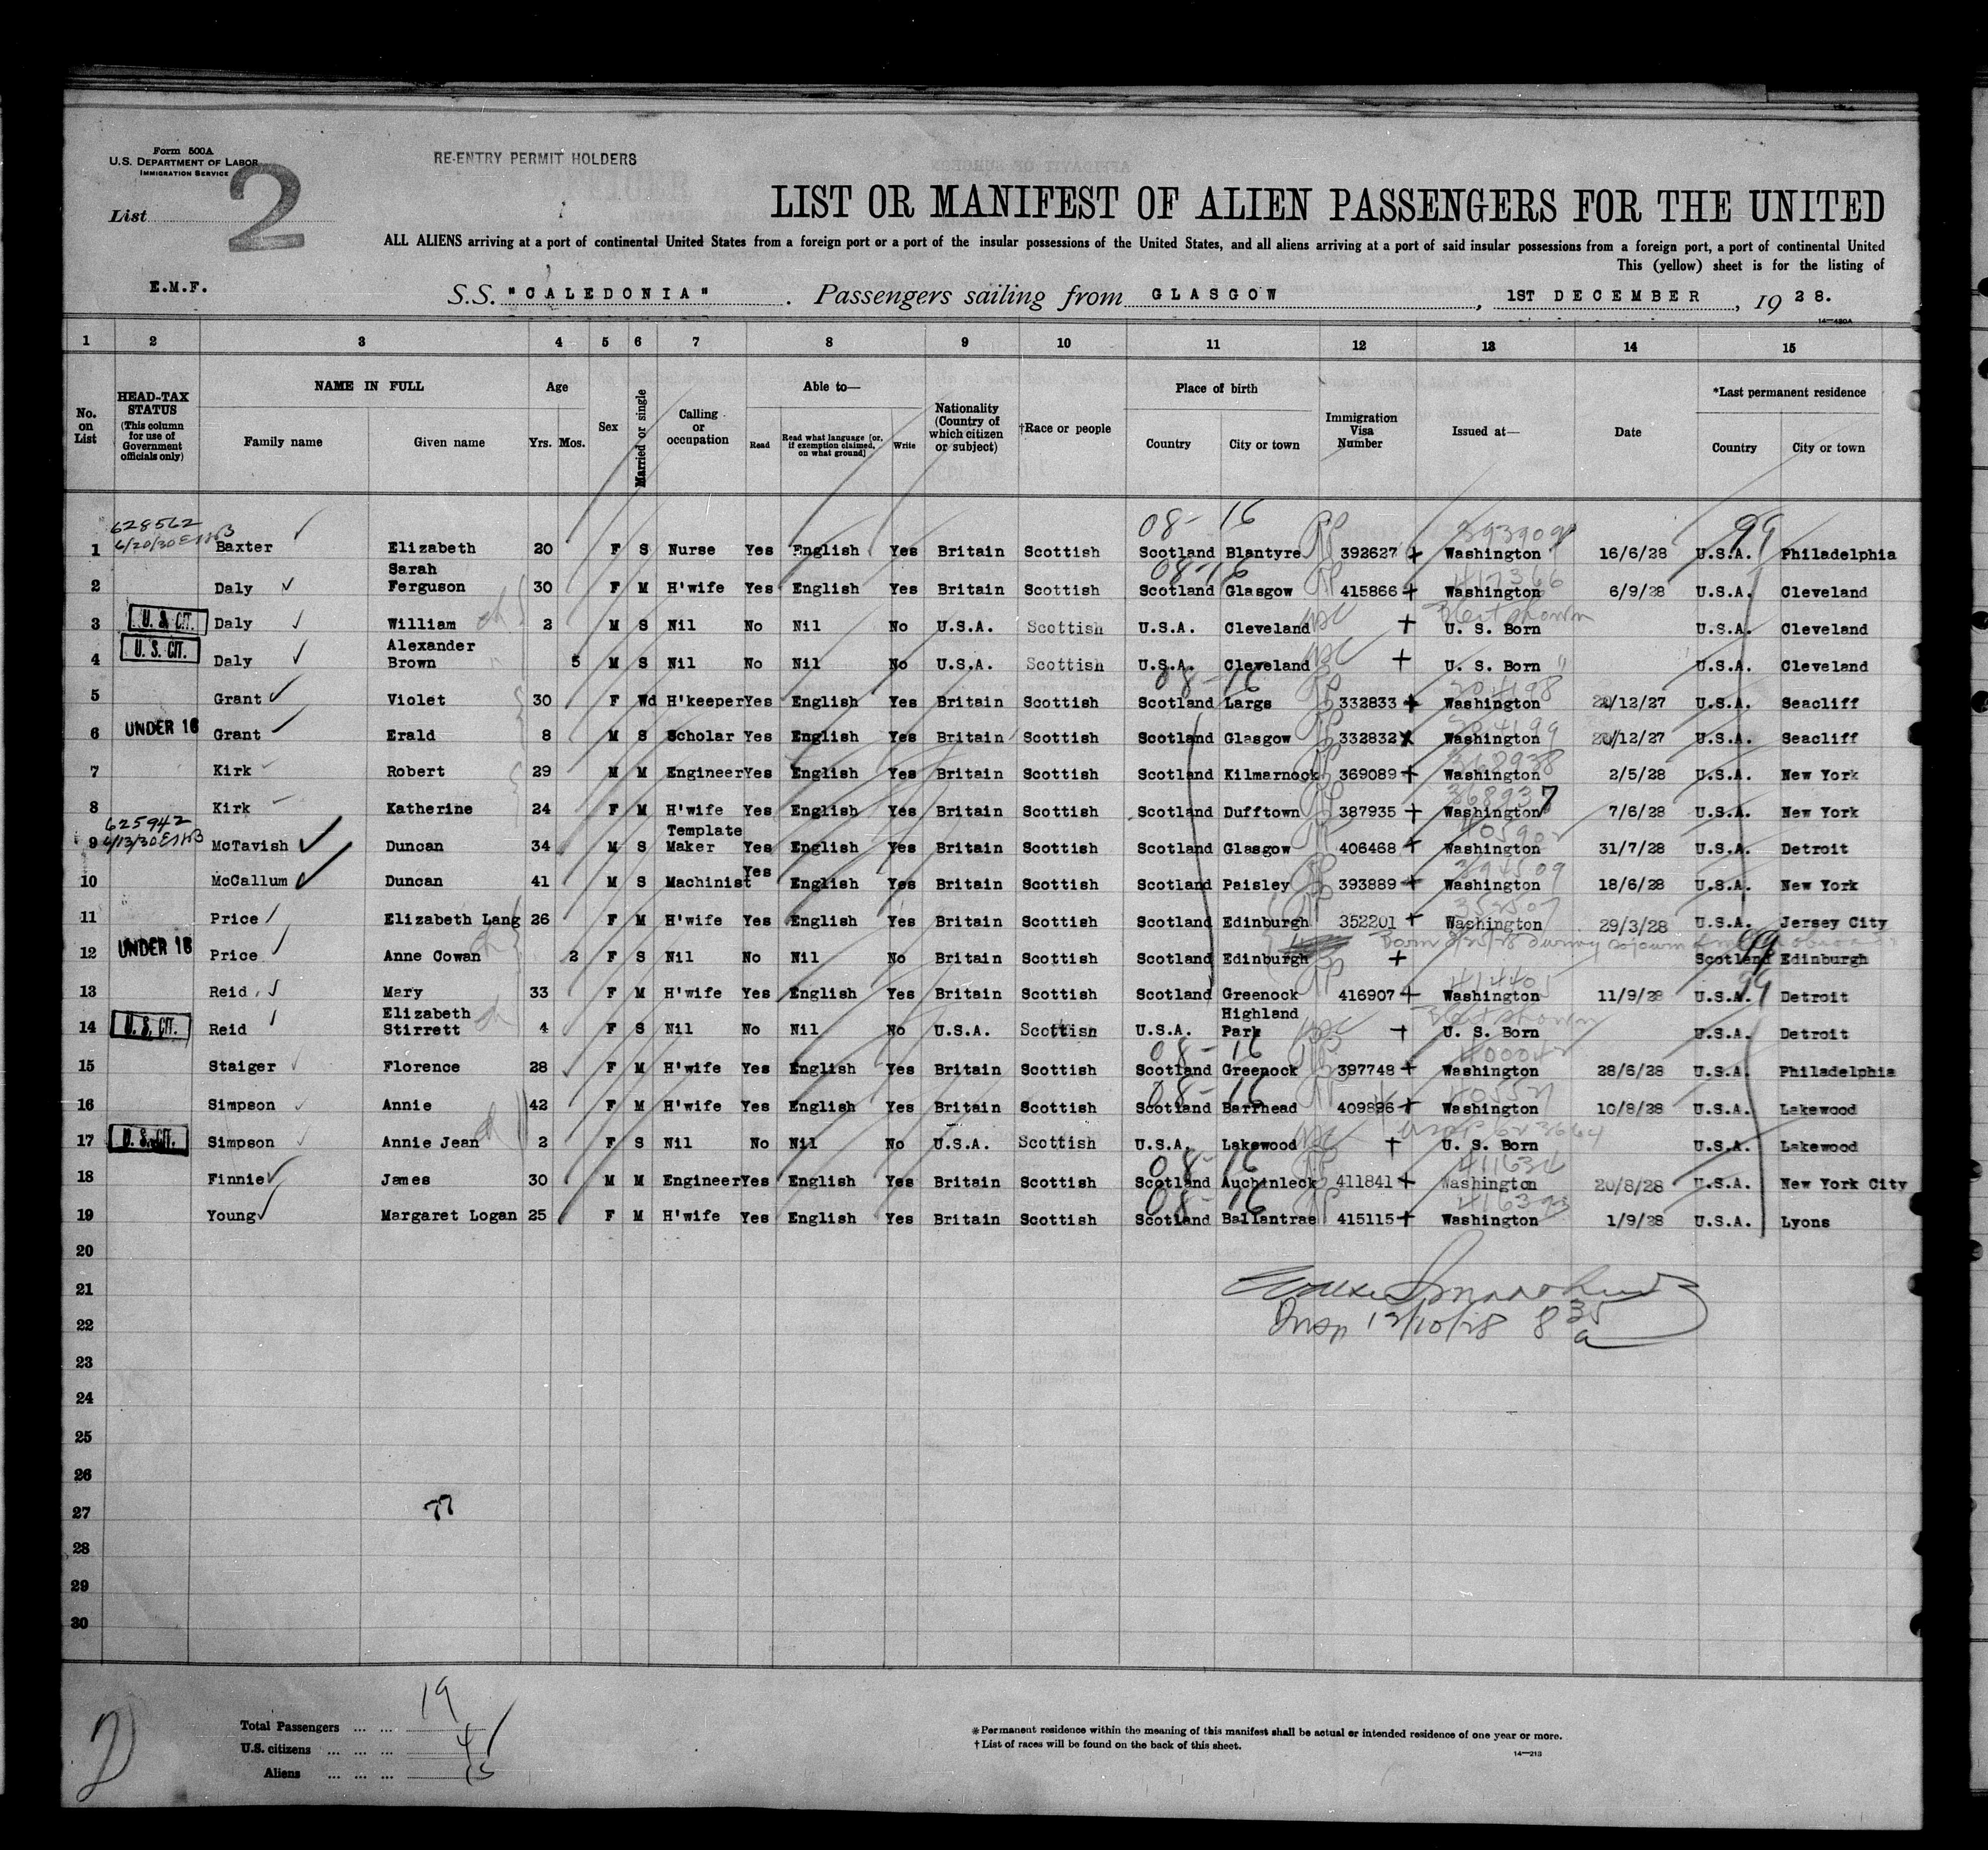 Form 500A
U.S. DEPARTMENT OF LABOR
IMMIGRATION SERVICE
RE-ENTRY PERMIT HOLDERS
List 2
LIST OR MANIFEST OF ALIEN PASSENGERS FOR THE UNITED
ALL ALIENS arriving at a port of continental United States from a foreign port or a port of the insular possessions of the United States, and all aliens arriving at a port of said insular possessions from a foreign port, a port of continental United
This (yellow) sheet is for the listing of
E.M.F.
S.S. "CALEDONIA". Passengers sailing from GLASGOW, 1ST DECEMBER, 1928.
14—430A
1 2 3 4 5 6 7 8 9 10 11 12 13 14 15
No. on List
HEAD-TAX STATUS (This column for use of Government officials only)
NAME IN FULL
Family name Given name
Age
Yrs. Mos.
Sex
Married or single
Calling or occupation
Able to—
Read Read what language [or, if exemption claimed, on what ground] Write
Nationality (Country of which citizen or subject)
†Race or people
Place of birth
Country City or town
Immigration Visa Number
Issued at—
Date
*Last permanent residence
Country City or town
628562 08-16 99
1 6/20/30 Baxter Elizabeth 20 F S Nurse Yes English Yes Britain Scottish Scotland Blantyre 392627 Washington 16/6/28 U.S.A. Philadelphia
08-16 417366
2 Daly Sarah Ferguson 30 F M H'wife Yes English Yes Britain Scottish Scotland Glasgow 415866 Washington 6/9/28 U.S.A. Cleveland
3 U.S. CIT. Daly William 2 M S Nil No Nil No U.S.A. Scottish U.S.A. Cleveland U. S. Born U.S.A. Cleveland
4 U.S. CIT. Daly Alexander Brown 5 M S Nil No Nil No U.S.A. Scottish U.S.A. Cleveland U. S. Born " U.S.A. Cleveland
08-16
5 Grant Violet 30 F Wd H'keeper Yes English Yes Britain Scottish Scotland Largs 332833 Washington /12/27 U.S.A. Seacliff
6 UNDER 16 Grant Erald 8 M S Scholar Yes English Yes Britain Scottish Scotland Glasgow 332832 Washington /12/27 U.S.A. Seacliff
368938
7 Kirk Robert 29 M M Engineer Yes English Yes Britain Scottish Scotland Kilmarnock 369089 Washington 2/5/28 U.S.A. New York
368937
8 Kirk Katherine 24 F M H'wife Yes English Yes Britain Scottish Scotland Dufftown 387935 Washington 7/6/28 U.S.A. New York
625942
9 6/13/30 McTavish Duncan 34 M S Template Maker Yes English Yes Britain Scottish Scotland Glasgow 406468 Washington 31/7/28 U.S.A. Detroit
394509
10 McCallum Duncan 41 M S Machinist Yes English Yes Britain Scottish Scotland Paisley 393889 Washington 18/6/28 U.S.A. New York
352507
11 Price Elizabeth Lang 26 F M H'wife Yes English Yes Britain Scottish Scotland Edinburgh 352201 Washington 29/3/28 U.S.A. Jersey City
Born during sojourn abroad 99
12 UNDER 16 Price Anne Cowan 2 F S Nil No Nil No Britain Scottish Scotland Edinburgh Scotland Edinburgh
99
13 Reid Mary 33 F M H'wife Yes English Yes Britain Scottish Scotland Greenock 416907 Washington 11/9/28 U.S.A. Detroit
14 U.S. CIT. Reid Elizabeth Stirrett 4 F S Nil No Nil No U.S.A. Scottish U.S.A. Highland Park U. S. Born U.S.A. Detroit
08-16
15 Staiger Florence 28 F M H'wife Yes English Yes Britain Scottish Scotland Greenock 397748 Washington 28/6/28 U.S.A. Philadelphia
08-16
16 Simpson Annie 42 F M H'wife Yes English Yes Britain Scottish Scotland Barrhead 409896 Washington 10/8/28 U.S.A. Lakewood
17 U.S. CIT. Simpson Annie Jean 2 F S Nil No Nil No U.S.A. Scottish U.S.A. Lakewood U. S. Born U.S.A. Lakewood
08-16
18 Finnie James 30 M M Engineer Yes English Yes Britain Scottish Scotland Auchinleck 411841 Washington 20/8/28 U.S.A. New York City
08-16
19 Young Margaret Logan 25 F M H'wife Yes English Yes Britain Scottish Scotland Ballantrae 415115 Washington 1/9/28 U.S.A. Lyons
20
21
22 Insp 12/10/28 8 35 a
23
24
25
26
27
28
29
30
2
Total Passengers ... ... 19
U.S. citizens ... ... ... 4
Aliens ... ... ... 15
*Permanent residence within the meaning of this manifest shall be actual or intended residence of one year or more.
†List of races will be found on the back of this sheet.
14—213